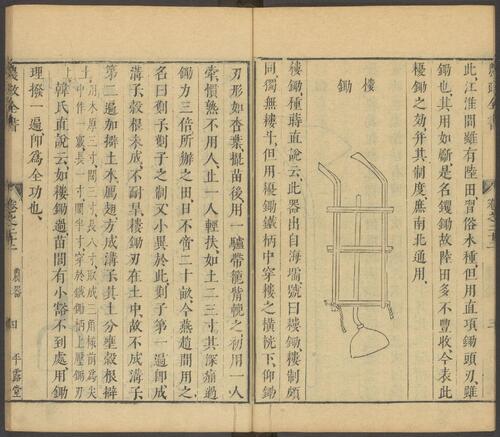 此江淮間雖有陸田習俗水種但用直項鋤頭刃雖
鋤也其用如斸是名钁鋤故陸田多不豐收今表此
耰鋤之効并其制度庶南北通用
耬鋤
耬鋤種蒔直說云此器出自海壖號曰耬鋤耬制頗
同獨無耬斗但用耰鋤鐵柄中穿耬之橫桄下仰鋤
刃形如杏葉撮苗後用一驢帶籠觜輓之初用一人
牽慣熟不用人止一人輕扶入土二三寸其深痛過
鋤力三倍所辦之田日不啻二十畝今燕趙間用之
名曰劐子劐子之制又小異於此劐子第一遍即成
溝子穀根未成不耐旱耬鋤刃在土中故不成溝子
第二遍加擗土木鴈翅方成溝子其土分壅穀根擗
土用木厚三寸闊三寸長八寸取成三角樣前為尖
中作一竅長一寸闊半寸穿於鐵鋤柄上壓鋤刃
韓氏直說云如耬鋤過苗間有小豁不到處用鋤
理撥一遍即為全功也
農政全書 卷之二十一 農器 四 平露堂